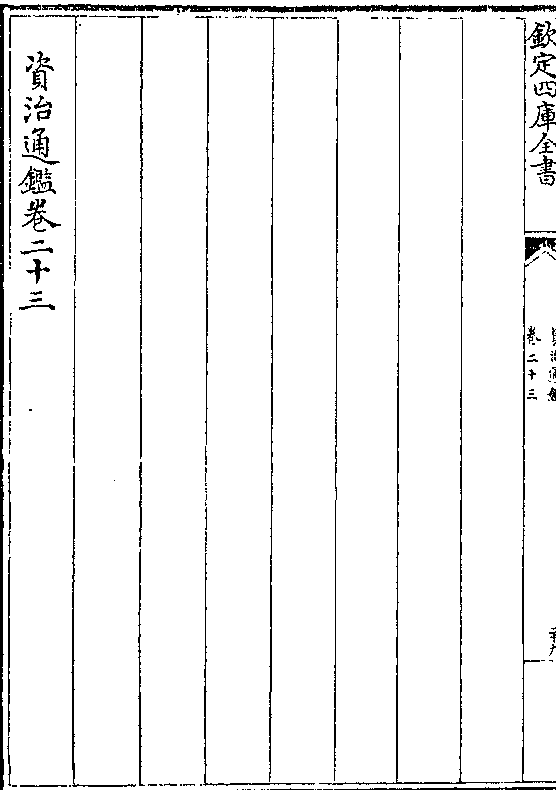 欽定四庫全書
卷二十三
資治通鑑卷二十三